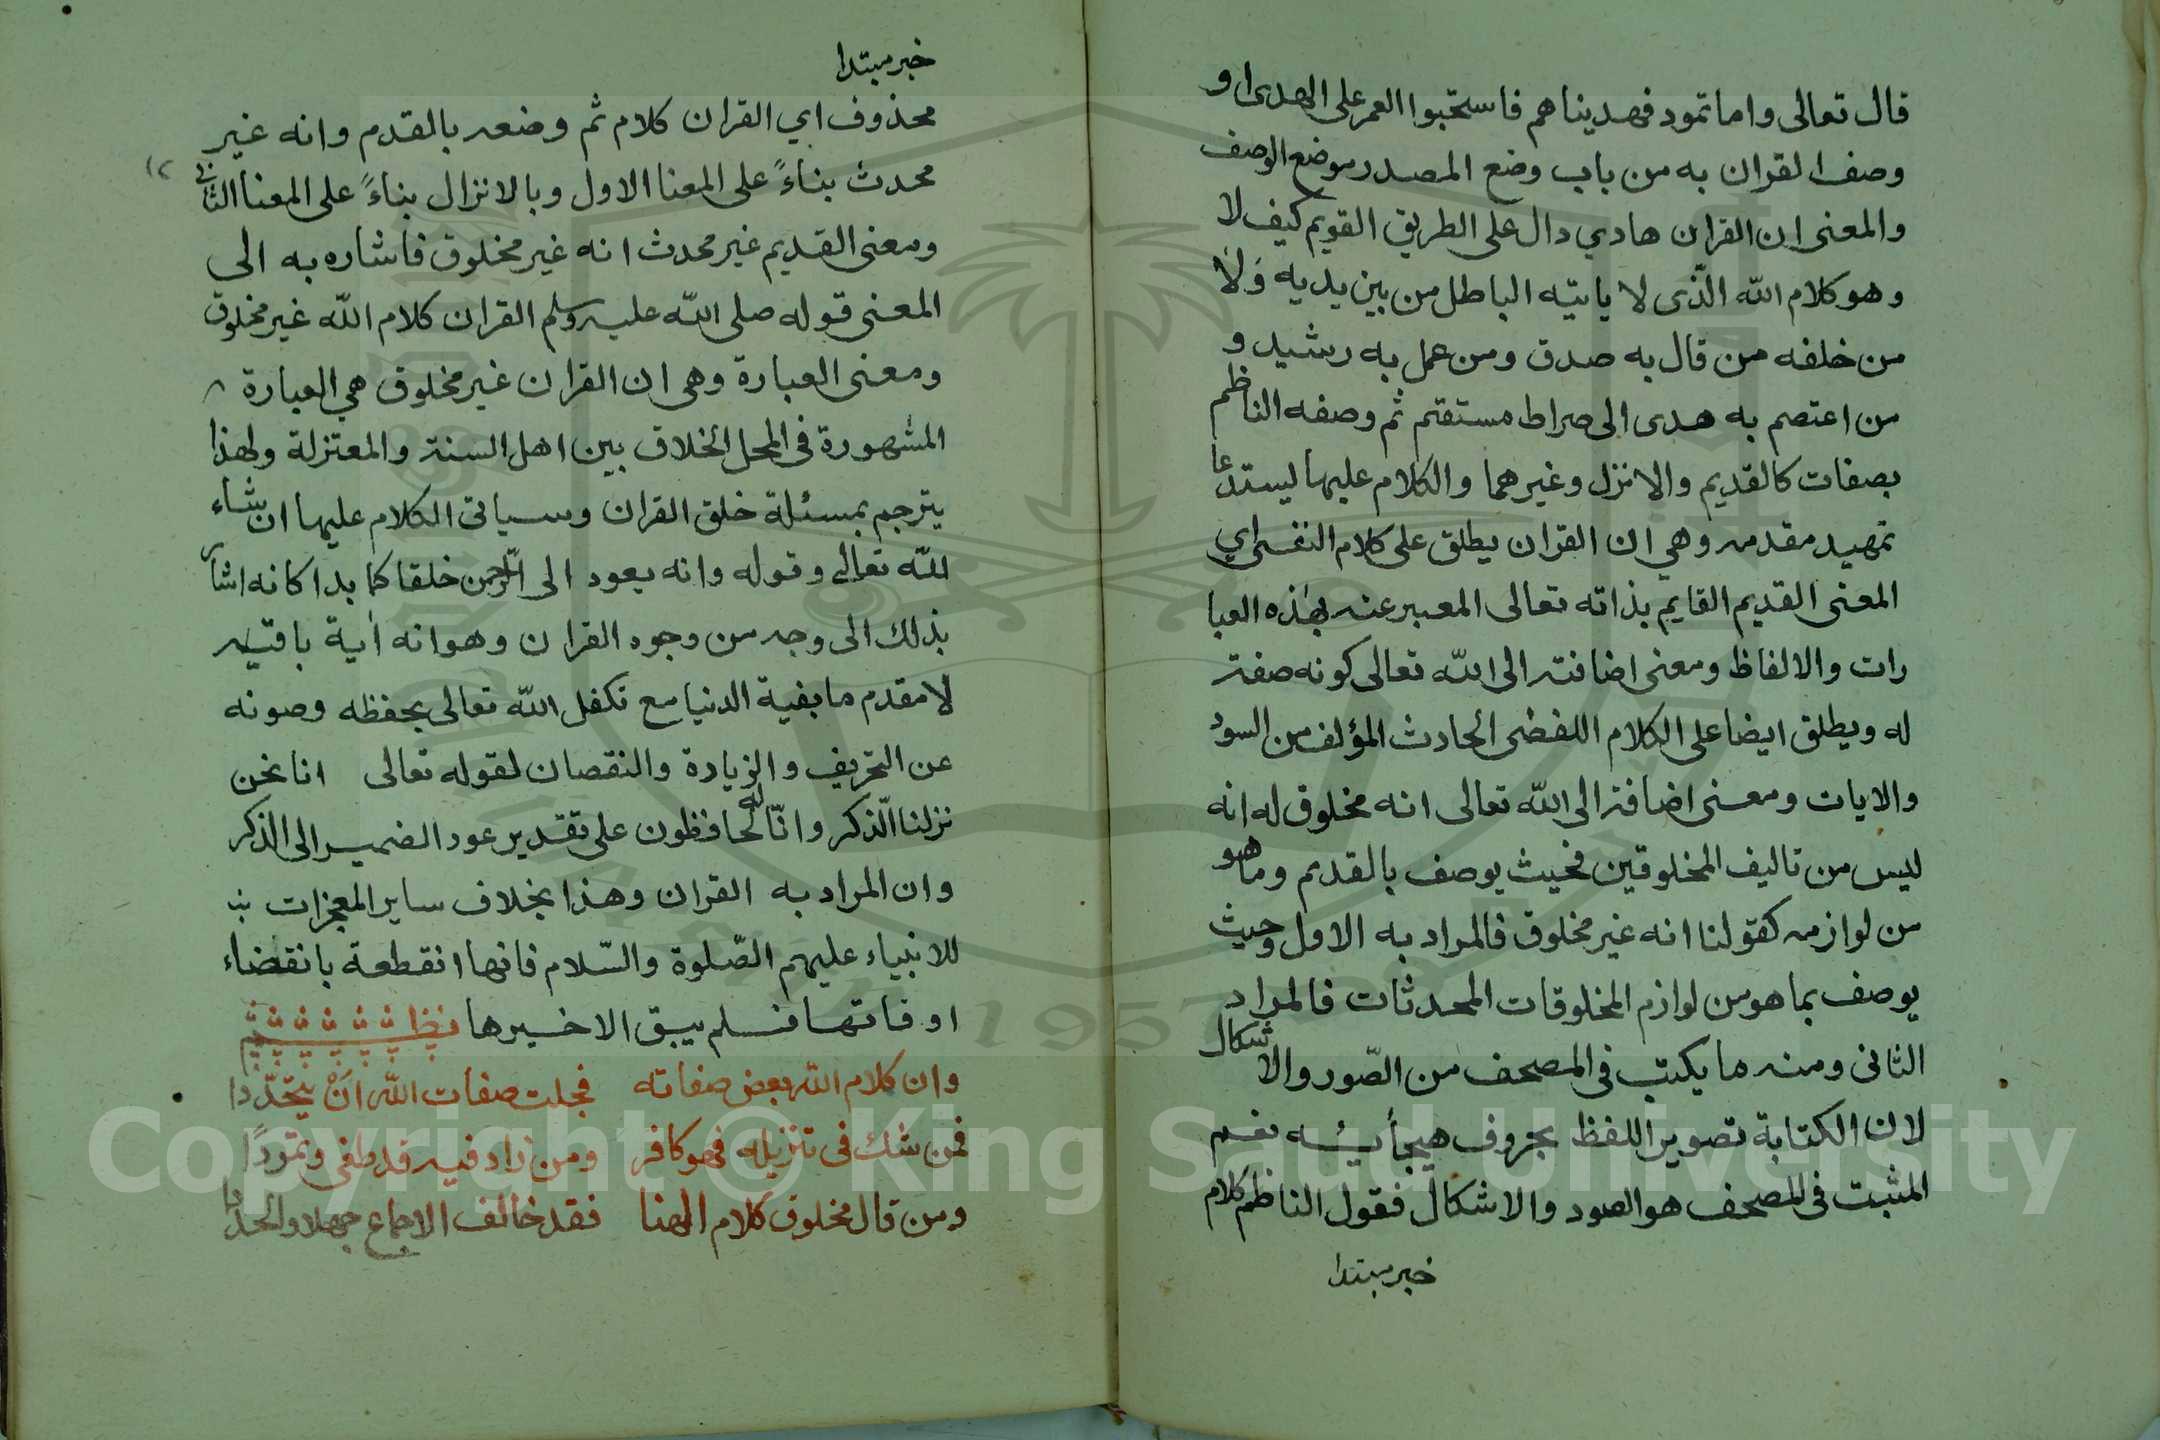 قال تعالى واما ثمود فهديناهم فاستحبوا العمى على الهدى او
وصف القران به من باب وضع المصدر موضع الوصف
والمعنى ان القران هادي دال على الطريق القويم كيف لا
وهو كلام الله الّذى لا ياتيه الباطل من بين يديه وَلا
من خلفه من قال به صدق ومن عمل به رشيد و
من اعتصم به هدى الى صراط مستقتم ثم وصفه الناظم
بصفات كالقديم والانزل وغيرهما والكلام عليها ليستدعا
تمهيد مقدمه وهي ان القران يطلق على كلام النفسى اي
المعنى القديم القايم بذاته تعالى المعبر عنه بهذه العبا
رات والالفاظ ومعنى اضافته الى الله تعالى كونه صفة
له ويطلق ايضا على الكلام اللفضى الحادث المؤلف من السور
والايات ومعنى اضافته الى الله تعالى انه مخلوق له انه
ليس من تاليف المخلوقين فحيث يوصف بالقدم وما هو
من لوازمه كقولنا انه غير مخلوق فالمراد به الاول وحيث
يوصف بما هو من لوازم المخلوقات المحدثات فالمراد
الثانى ومنه ما يكتب فى المصحف من الصّور والاشكال
لان الكتابة تصوير اللفظ بحروف نعم
المثبت فى المصحف هو الصور والاشكال فقول الناظم كلام
خبر مبتدا
خبر مبتدا
محذوف اي القران كلام ثم وضعه بالقدم وانه غير
محدث بناءً على المعنا الاول وبالانزال بناءً على المعنا الثانى
ومعنى القديم غير محدث انه غير مخلوق فاشاره به الى
المعنى قوله صلى الله عليه وسلم القران كلام الله غير مخلوق
ومعنى العبارة وهى ان القران غير مخلوق هي العبارة
المشهورة فى المحل الخلاف بين اهل السنة والمعتزلة ولهذا
يترجم بمسئلة خلق القران وسياتى الكلام عليها ان شاء
لله تعالى وقوله وانه يعود الى الرّحمن خلقا كما بدا كانه اشار
بذلك الى وجه من وجوه القران وهو انه أية باقتيه
لا مقدم ما بقية الدنيا مع تكفل الله تعالى بحفظه وصونه
عن التحريف والزيادة والنقصان لقوله تعالى انا نحن
نزلنا الّذكر وانّا له لحافظون على تقدير عود الضمير الى الذكر
وان المراد به القران وهذا بخلاف ساير المعجزات
للانبياء عليهم الصّلوة والسّلام فانها انقطعة بانقضاء
اوقاتها فلم يبق الا خبرها نظم
وان كلام الله بعض صفاته فجلت صفات الله اَنْ يتحدّدا
فمن شك فى تنزيله فهو كافر ومن زاد فيه قد طغى وتمردًا
ومن قال مخلوق كلام الهنا فقد خالف الاجماع جهلا والحدا
١٢
Copyright © King Saud University
1957